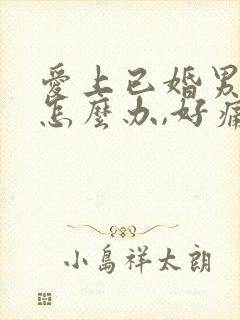 愛上已婚男
怎麼办,好痛
小島祥太朗